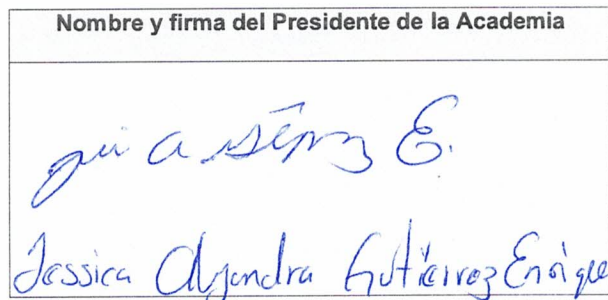 Nombre y firma del Presidente de la Academia
E.
Jessica Alejandra Gutiérrez Enrique